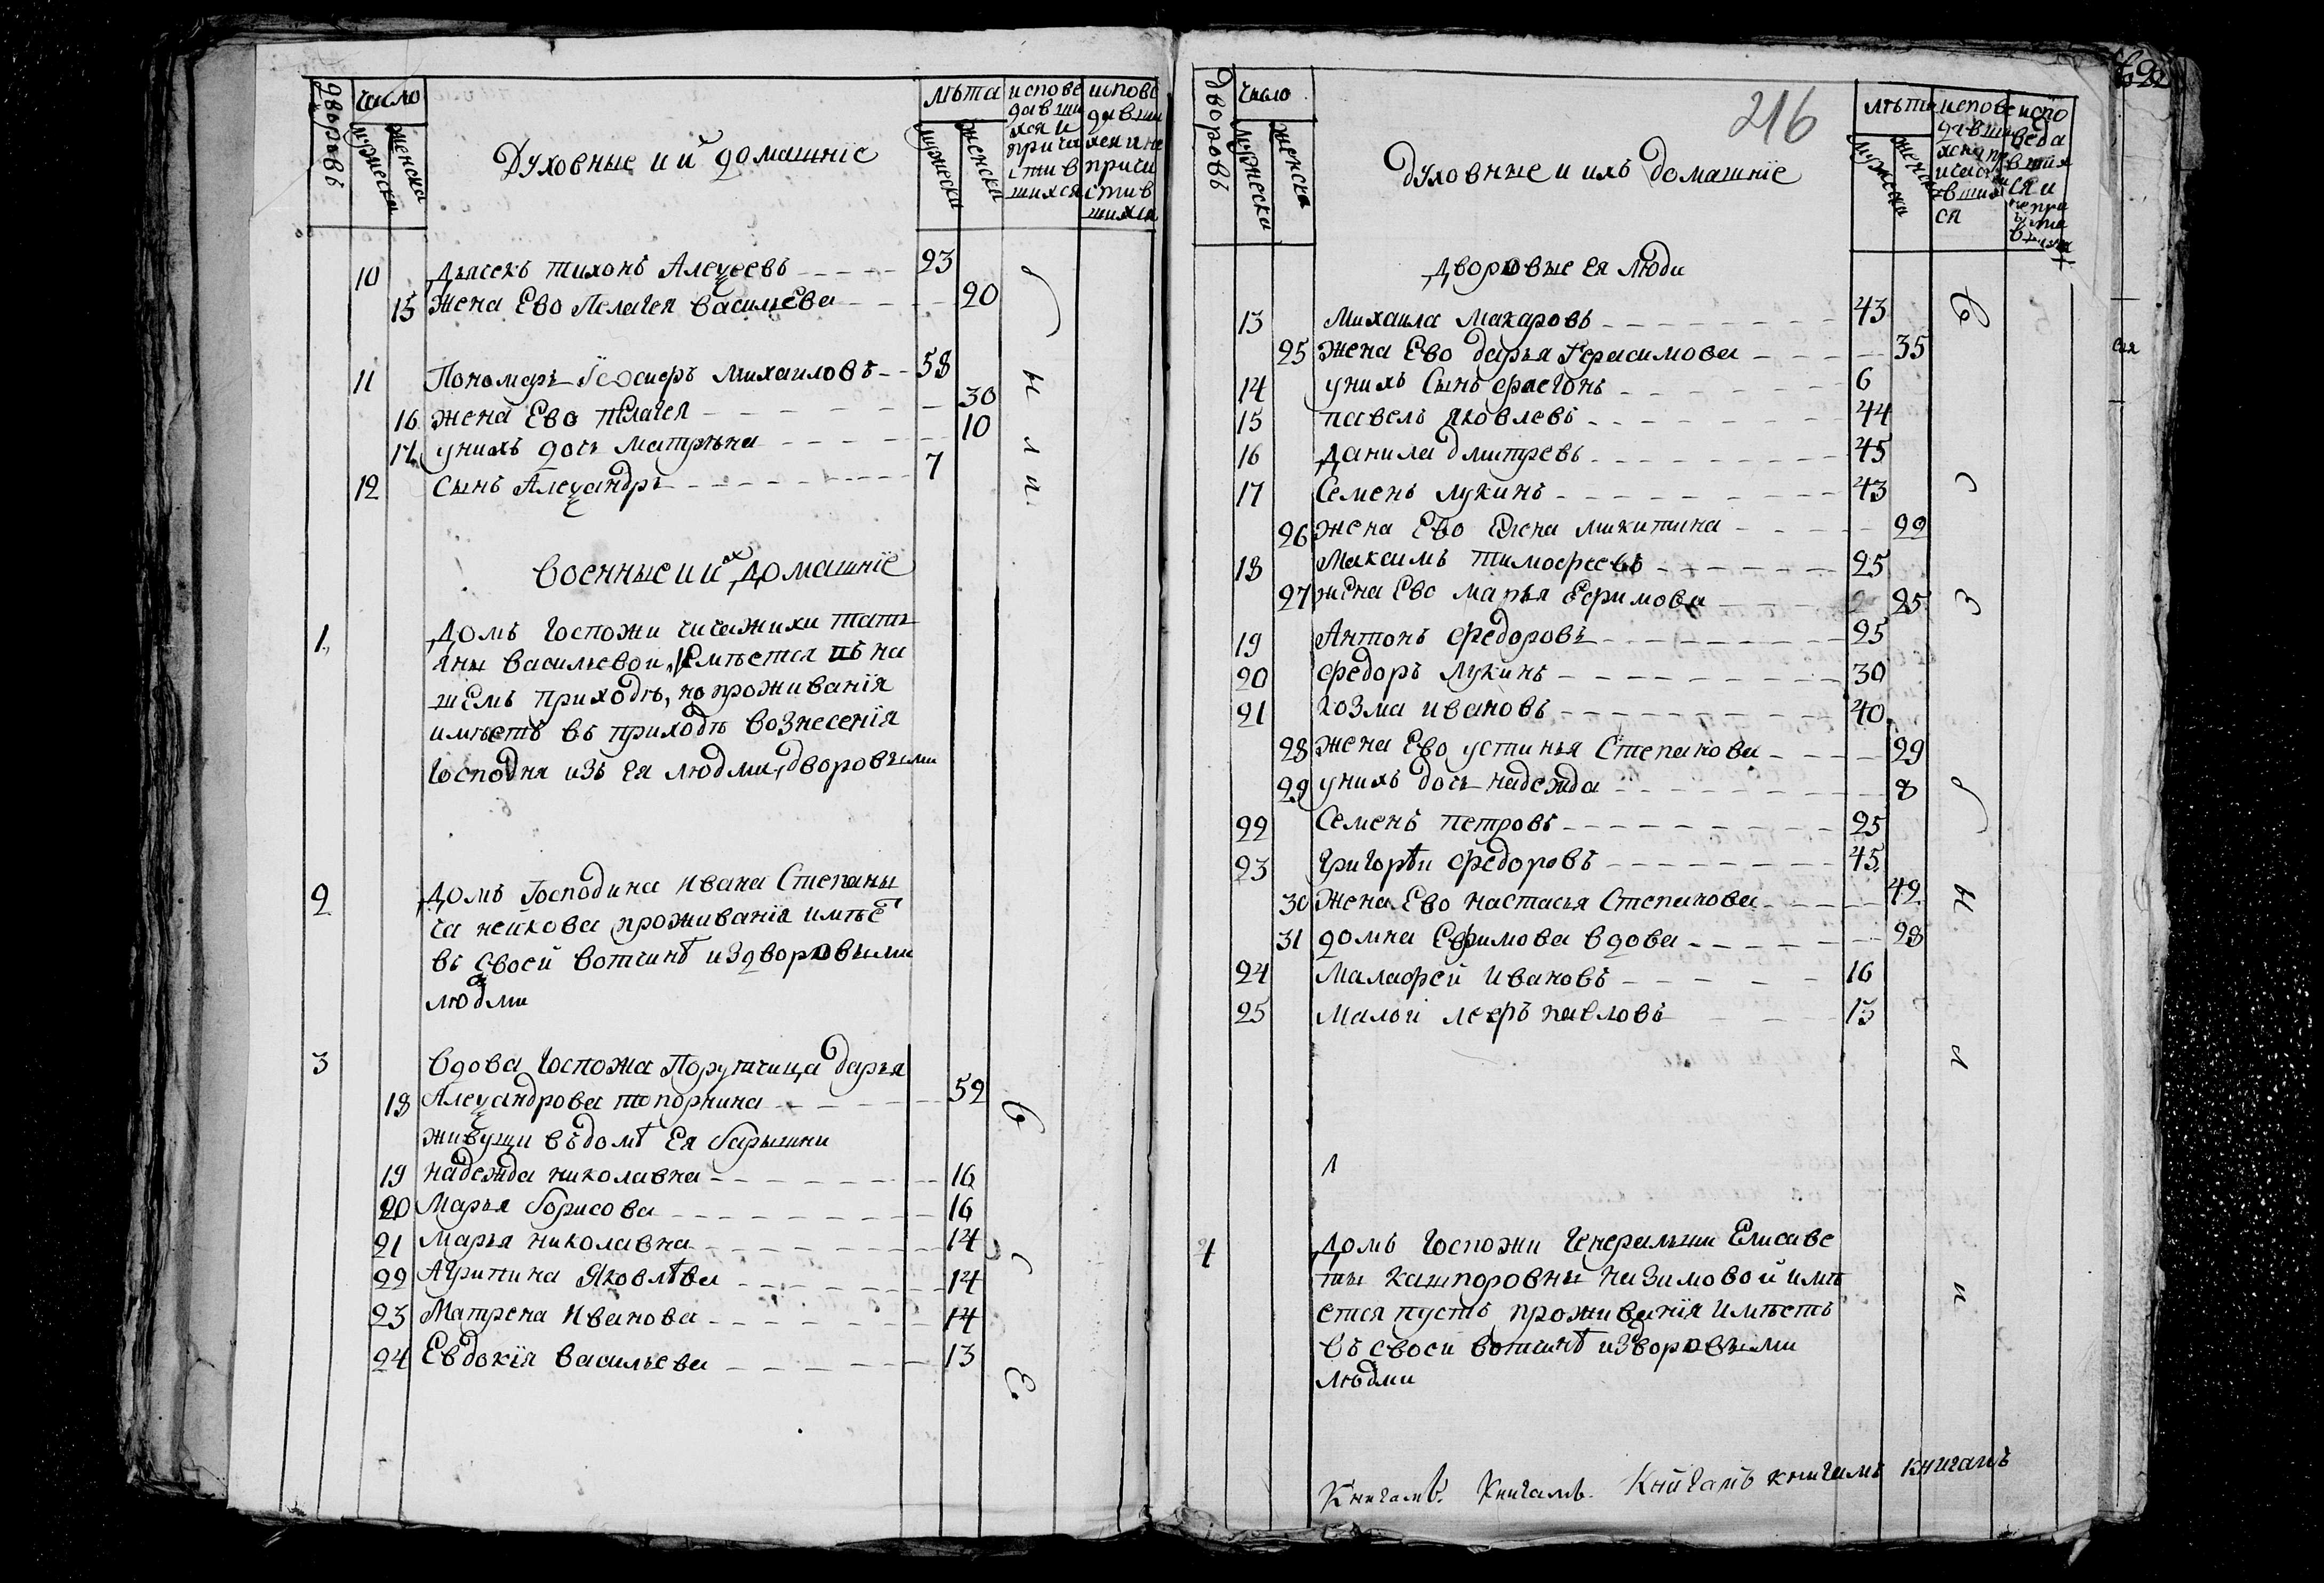 дворовъ
число
мужеска
женска
Духовные и й домашніе
лѣта
мужески
женски
испове
давши
хся и
прича
стив
шихся
испове
давши
хся и не
приси
стив
шихся
10 Дьячекъ Тихонъ Алеѯеевъ 23
15 Жена Ево Пелагея Васильева 20
11 Пономарь Михаиловъ 58
16 жена Ево пелагея 30
17 унихъ дочь Матрѣна 10
12 Сынъ Алеѯандръ 7
были
Военные и их домашніе
1, Домъ Госпожи чичажихи Тать
яны Васильевои, Имѣется въ на
шемъ приходѣ, но проживанія
имѣетъ въ приходѣ Вознесенія
Господня изъ ея людми, дворовыми
2 Домъ Господина Ивана Степаны
ча нейкова проживанія имѣе
въ своей вотчинѣ издворовыми
людми
3 Вдова Госпожа Порутчица Дарья
18 Алеѯандрова топорнина 52
живущи въ домѣ Ея барышни
19 надежда николавна 16
20 Марья борисова 16
21 Марья николавна 14
22 Агрипина Яковлѣва 14
23 Матрена Иванова 14
24 Евдокія васильева 13
все
216
дворовъ
число
мужеска
женска
Духовные и ихъ домашніе
лѣта
мужска
женска
испове
давши
хся и пр
ичаст
вших
ся
испо
веда
вших
ся и
непри
Дворовые ея люди
13 Михаила Макаровъ 43
25 жена Ево дарья Герасимова 35
14 унихъ Сынъ 6
15 павелъ яковлевъ 44
16 Данила дмитревъ 45
17 Семенъ лукинъ 43
26 жена Ево Елена микитина 22
18 Максимъ тимофеевъ 25
27 жена Ево марья Ефимова 25
19 Антонъ федоровъ 25
20 федоръ лукинъ 30
21 козма ивановъ 40
28 жена Ево устинья Степанова 29
29 унихъ дочь надежда 8
22 Семенъ петровъ 25
23 григорѣи федоровъ 45
30 Жена Ево настасья Степанова 42
31 домна Ефимова вдова 28
24 Малафеи ивановъ 16
25 Малои павловъ 13
4 Домъ Госпожи Генеральши Елисаве
ты кашпоровны назимовой имѣ
ется пустъ проживанія имѣетъ
въ своеи вотчинѣ издворовыми
людми
Книгамъ. Книгамъ. Книгамъ книгамъ книгамъ